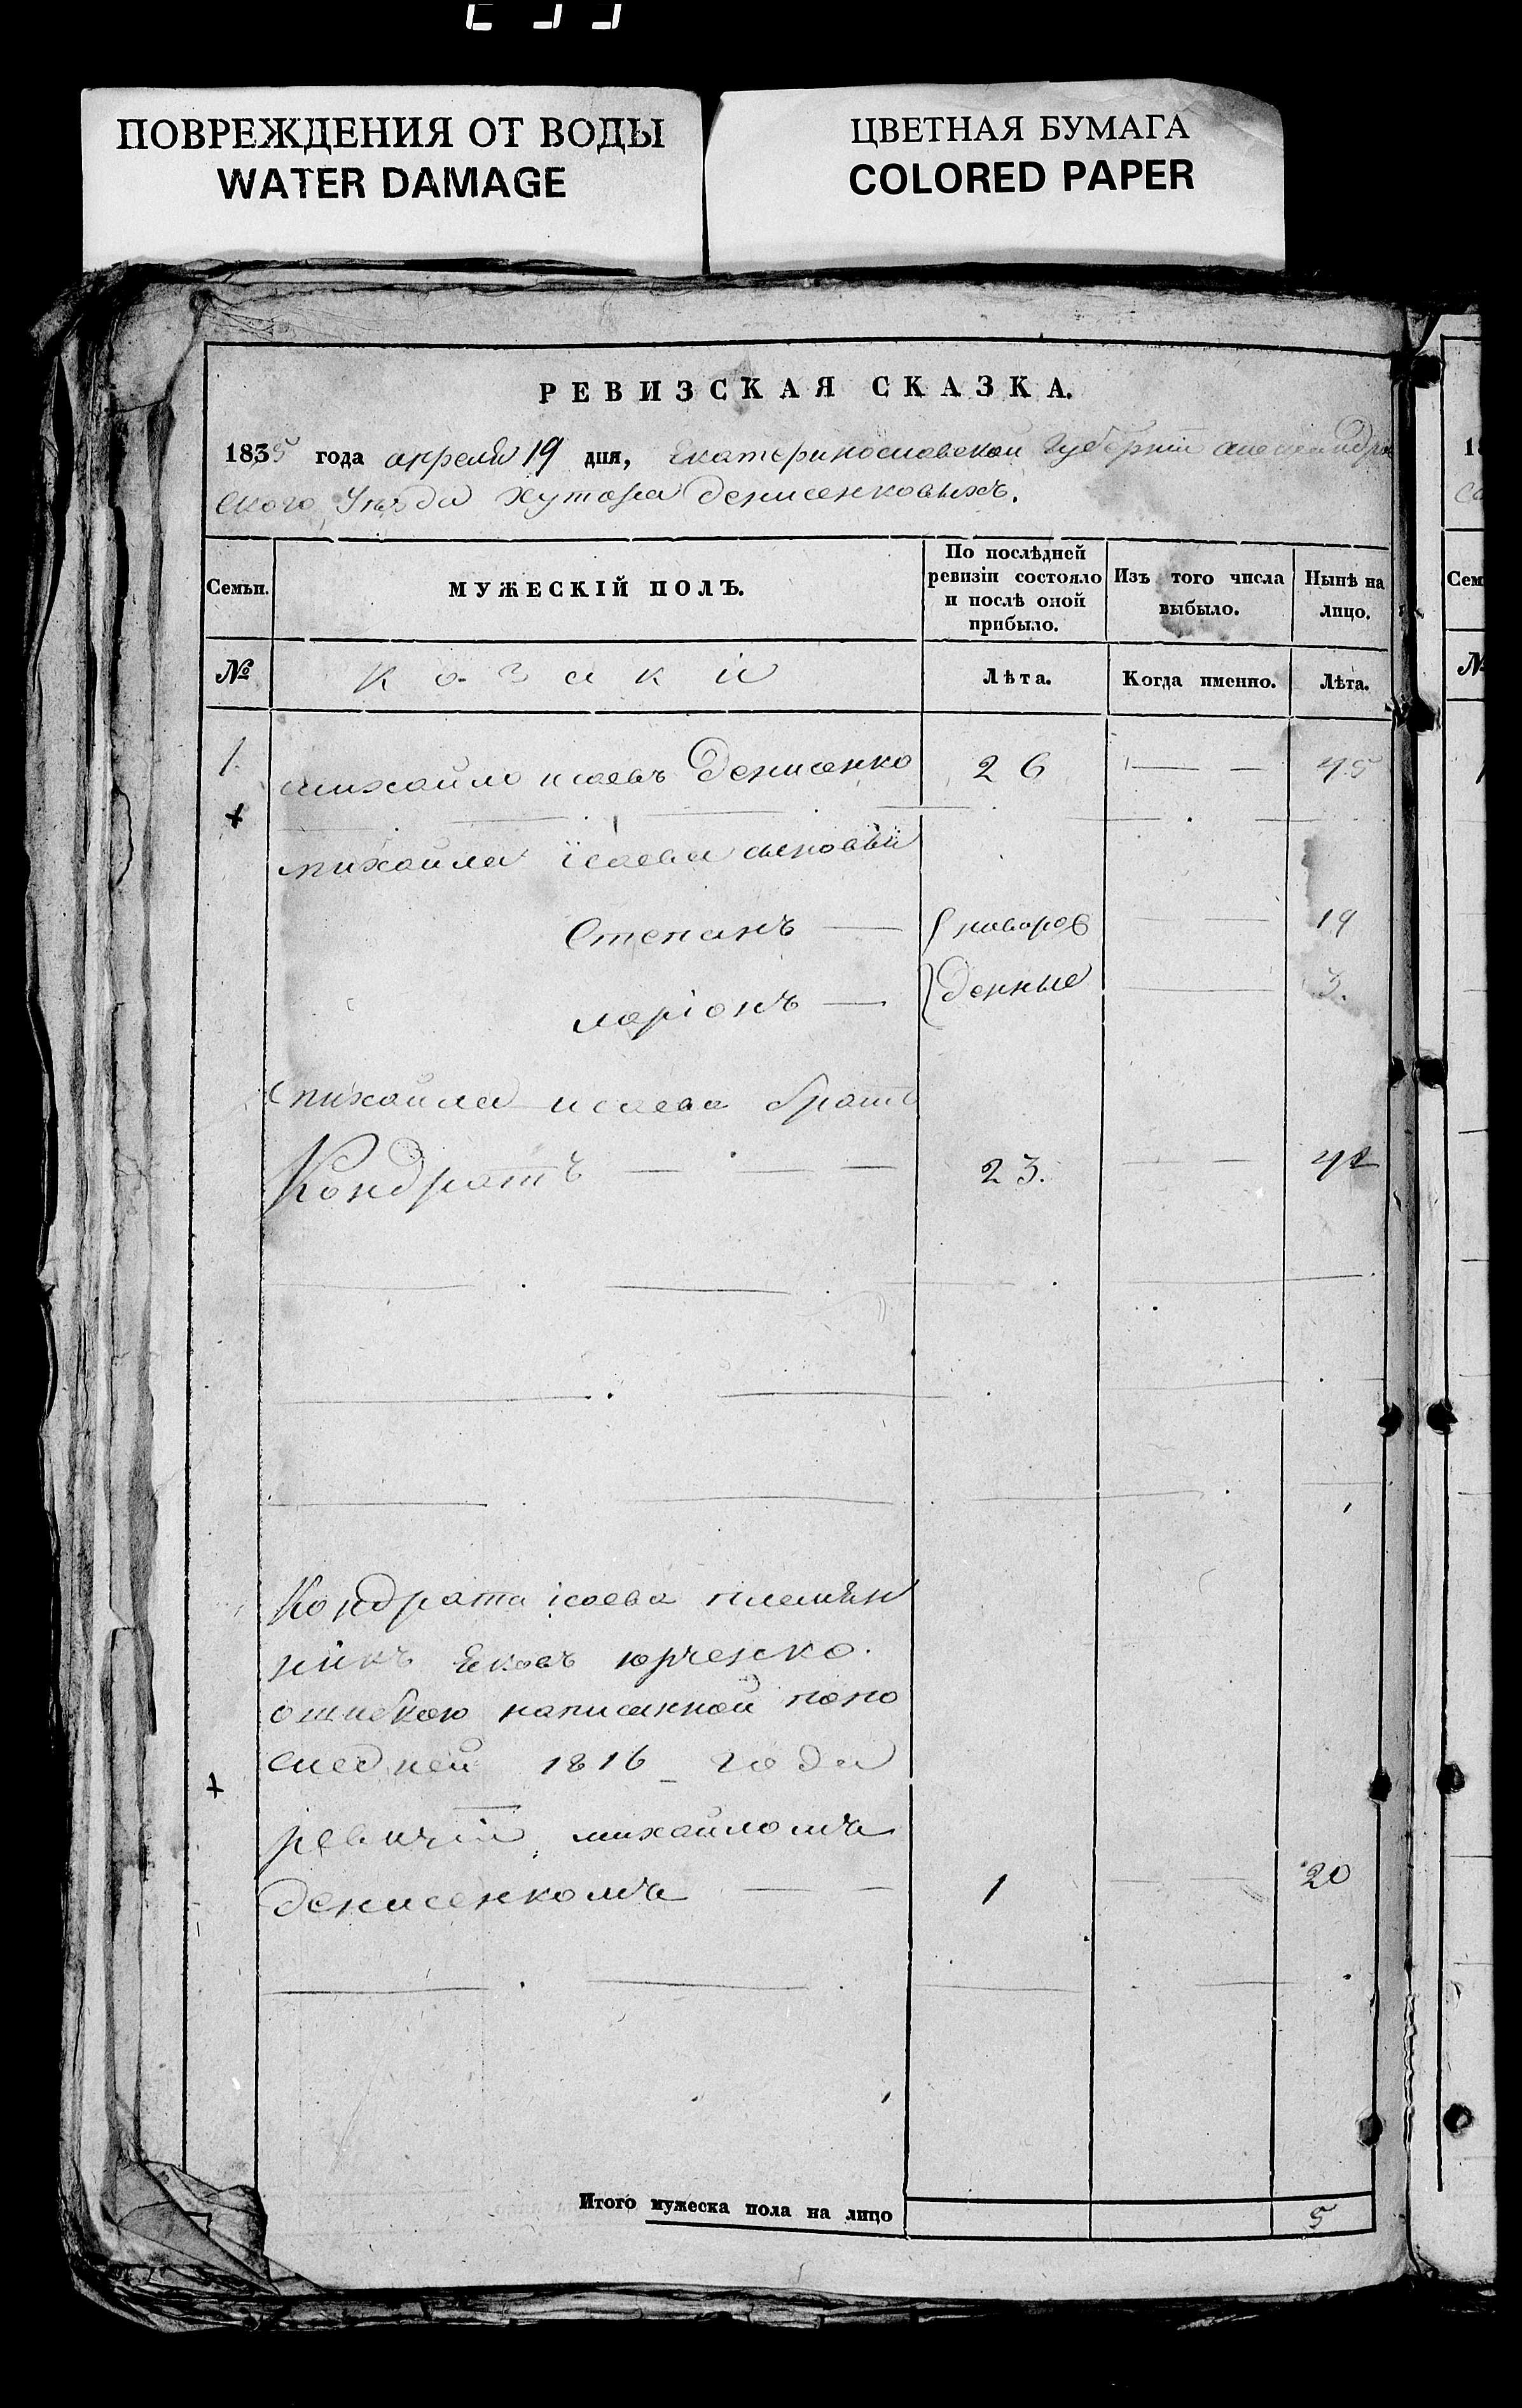 ПОВРЕЖДЕНИЯ ОТ ВОДЫ
WATER DAMAGE
ЦВЕТНАЯ БУМАГА
COLORED PAPER
РЕВИЗСКАЯ СКАЗКА.
1835 года апреля 19 дня, Екатеринославской Губернии александров
ского Уезда хутора денисенковыхъ.
Семьи. МУЖЕСКІЙ ПОЛЪ. По послѣдней ревизіи состояло и послѣ оной прибыло. Изъ того числа выбыло. Нынѣ на лицо.
№ козаки Лѣта. Когда именно. Лѣта.
1. михайло исаевъ Денисенко 26 45
михайла їсаева сыновьи
Степанъ — новорож 19
ларіонъ — денные 3.
михайла исаева братъ
Кондратъ 23. 42
Кондрата ісаева племян
никъ Яковъ юрченко.
ошибкою написанной попо
следней 1816 года
ревизіи михайломъ
денисенкомъ 1 20
Итого мужеска пола на лицо 5
18
Сем
№